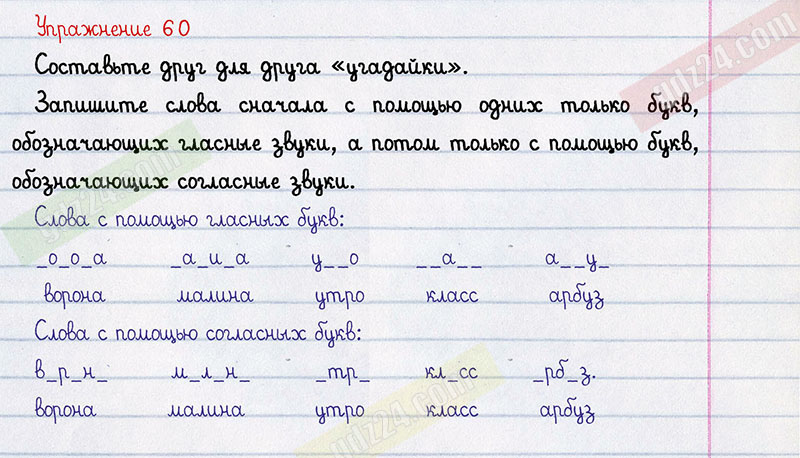 Упражнение 60
Составьте друг для друга «угадайки».
Запишите слова сначала с помощью одних только букв,
обозначающих гласные звуки, а потом только с помощью букв,
обозначающих согласные звуки.
Слова с помощью гласных букв:
_о_о_а _а_и_а у__о __а__ а__у_
ворона малина утро класс арбуз
Слова с помощью согласных букв:
в_р_н_ м_л_н_ _тр_ кл_сс _рб_з.
ворона малина утро класс арбуз
gdz24.com
gdz24.com
gdz24.com